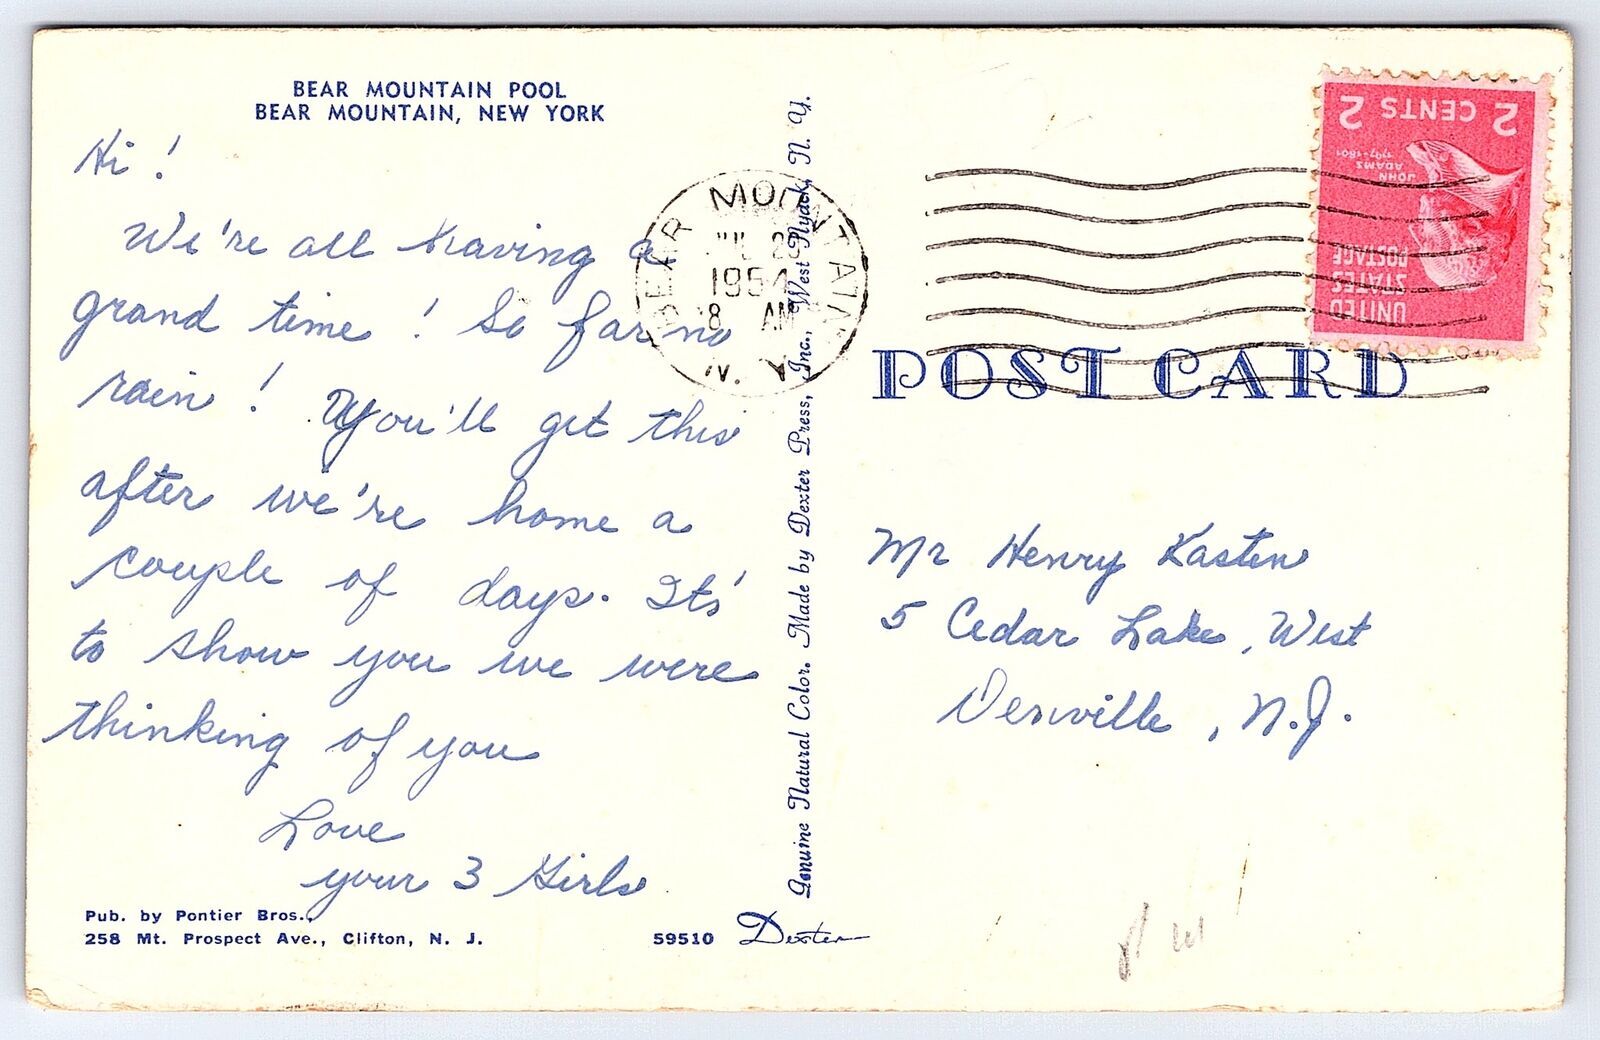 BEAR MOUNTAIN POOL
BEAR MOUNTAIN, NEW YORK
Hi!
We're all having a
grand time! So far no
rain! You'll get this
after we're home a
couple of days. Its'
to show you we were
thinking of you
Love
your 3 Girls
Pub. by Pontier Bros.,
258 Mt. Prospect Ave., Clifton, N. J.
59510 Dexter
Genuine Natural Color. Made by Dexter Press, Inc., West Nyack, N. Y.
BEAR MOUNTAIN
JUL 28
1954
8 AM
N. Y.
2 CENTS 2
JOHN
ADAMS
1797-1801
UNITED
STATES
POSTAGE
POST CARD
Mr Henry Kasten
5 Cedar Lake, West
Denville, N.J.